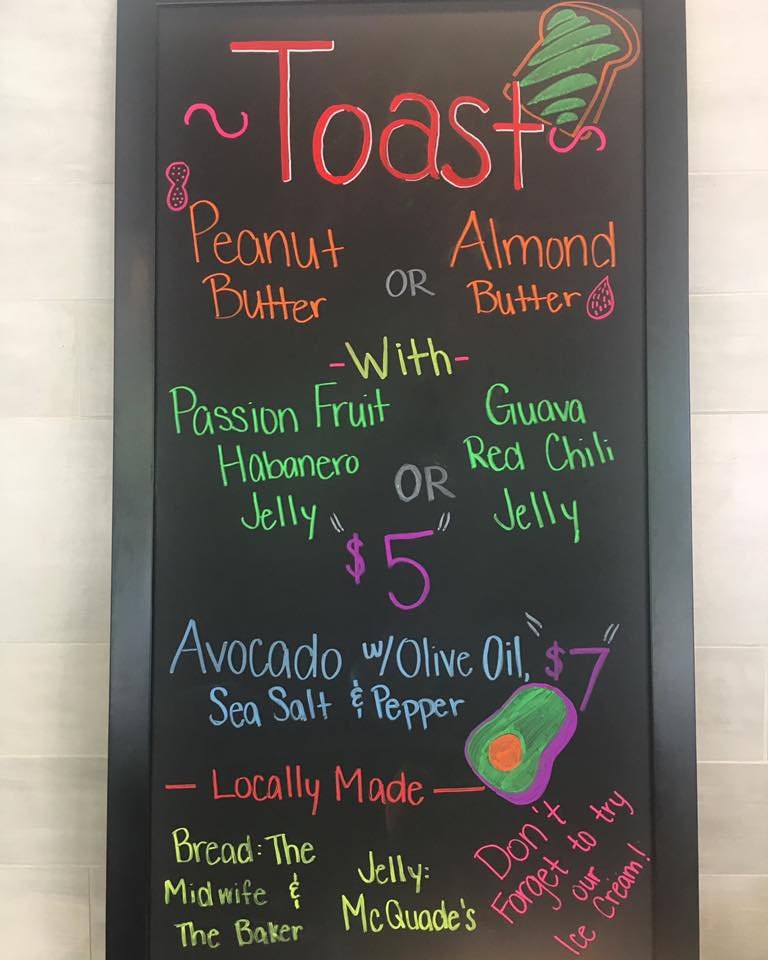 ~Toast~
Peanut Butter OR Almond Butter
-With-
Passion Fruit Habanero Jelly OR Guava Red Chili Jelly
"$5"
Avocado w/Olive Oil, "$7"
Sea Salt & Pepper
— Locally Made —
Bread: The
Midwife &
The Baker
Jelly:
McQuade's
Don't
Forget to try
our
Ice Cream!